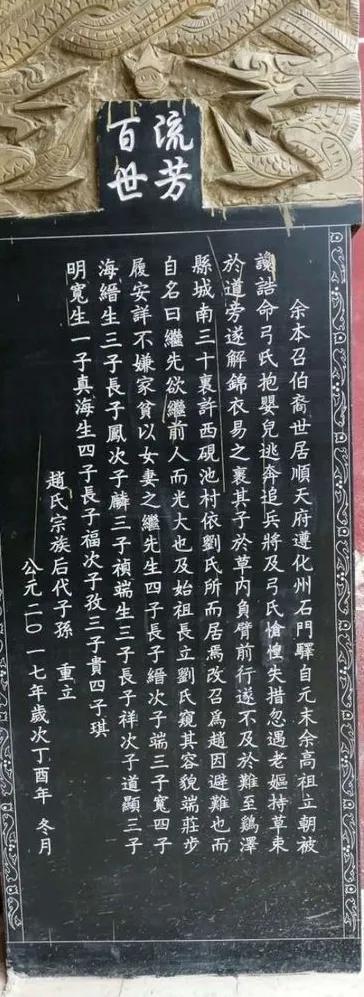 流芳
百世
余本召伯裔世居順天府遵化州石門驛自元末余高祖立朝被
讒誥命弓氏抱嬰兒逃奔追兵將及弓氏愴惶失措忽遇老嫗持草束
於道旁遂解錦衣易之裹其子於草內負臂前行遂不及於難至鷄澤
縣城南三十裏許西硯池村依劉氏所而居焉改召爲趙因避難也而
自名曰繼先欲繼前人而光大也及始祖長立劉氏窺其容貌端莊步
履安詳不嫌家貧以女妻之繼先生四子長子縉次子端三子寬四子
海縉生三子長子鳳次子麟三子禎端生三子長子祥次子道顯三子
明寬生一子真海生四子長子福次子孜三子貴四子琪
趙氏宗族后代子孫 重立
公元二〇一七年歲次丁酉年 冬月